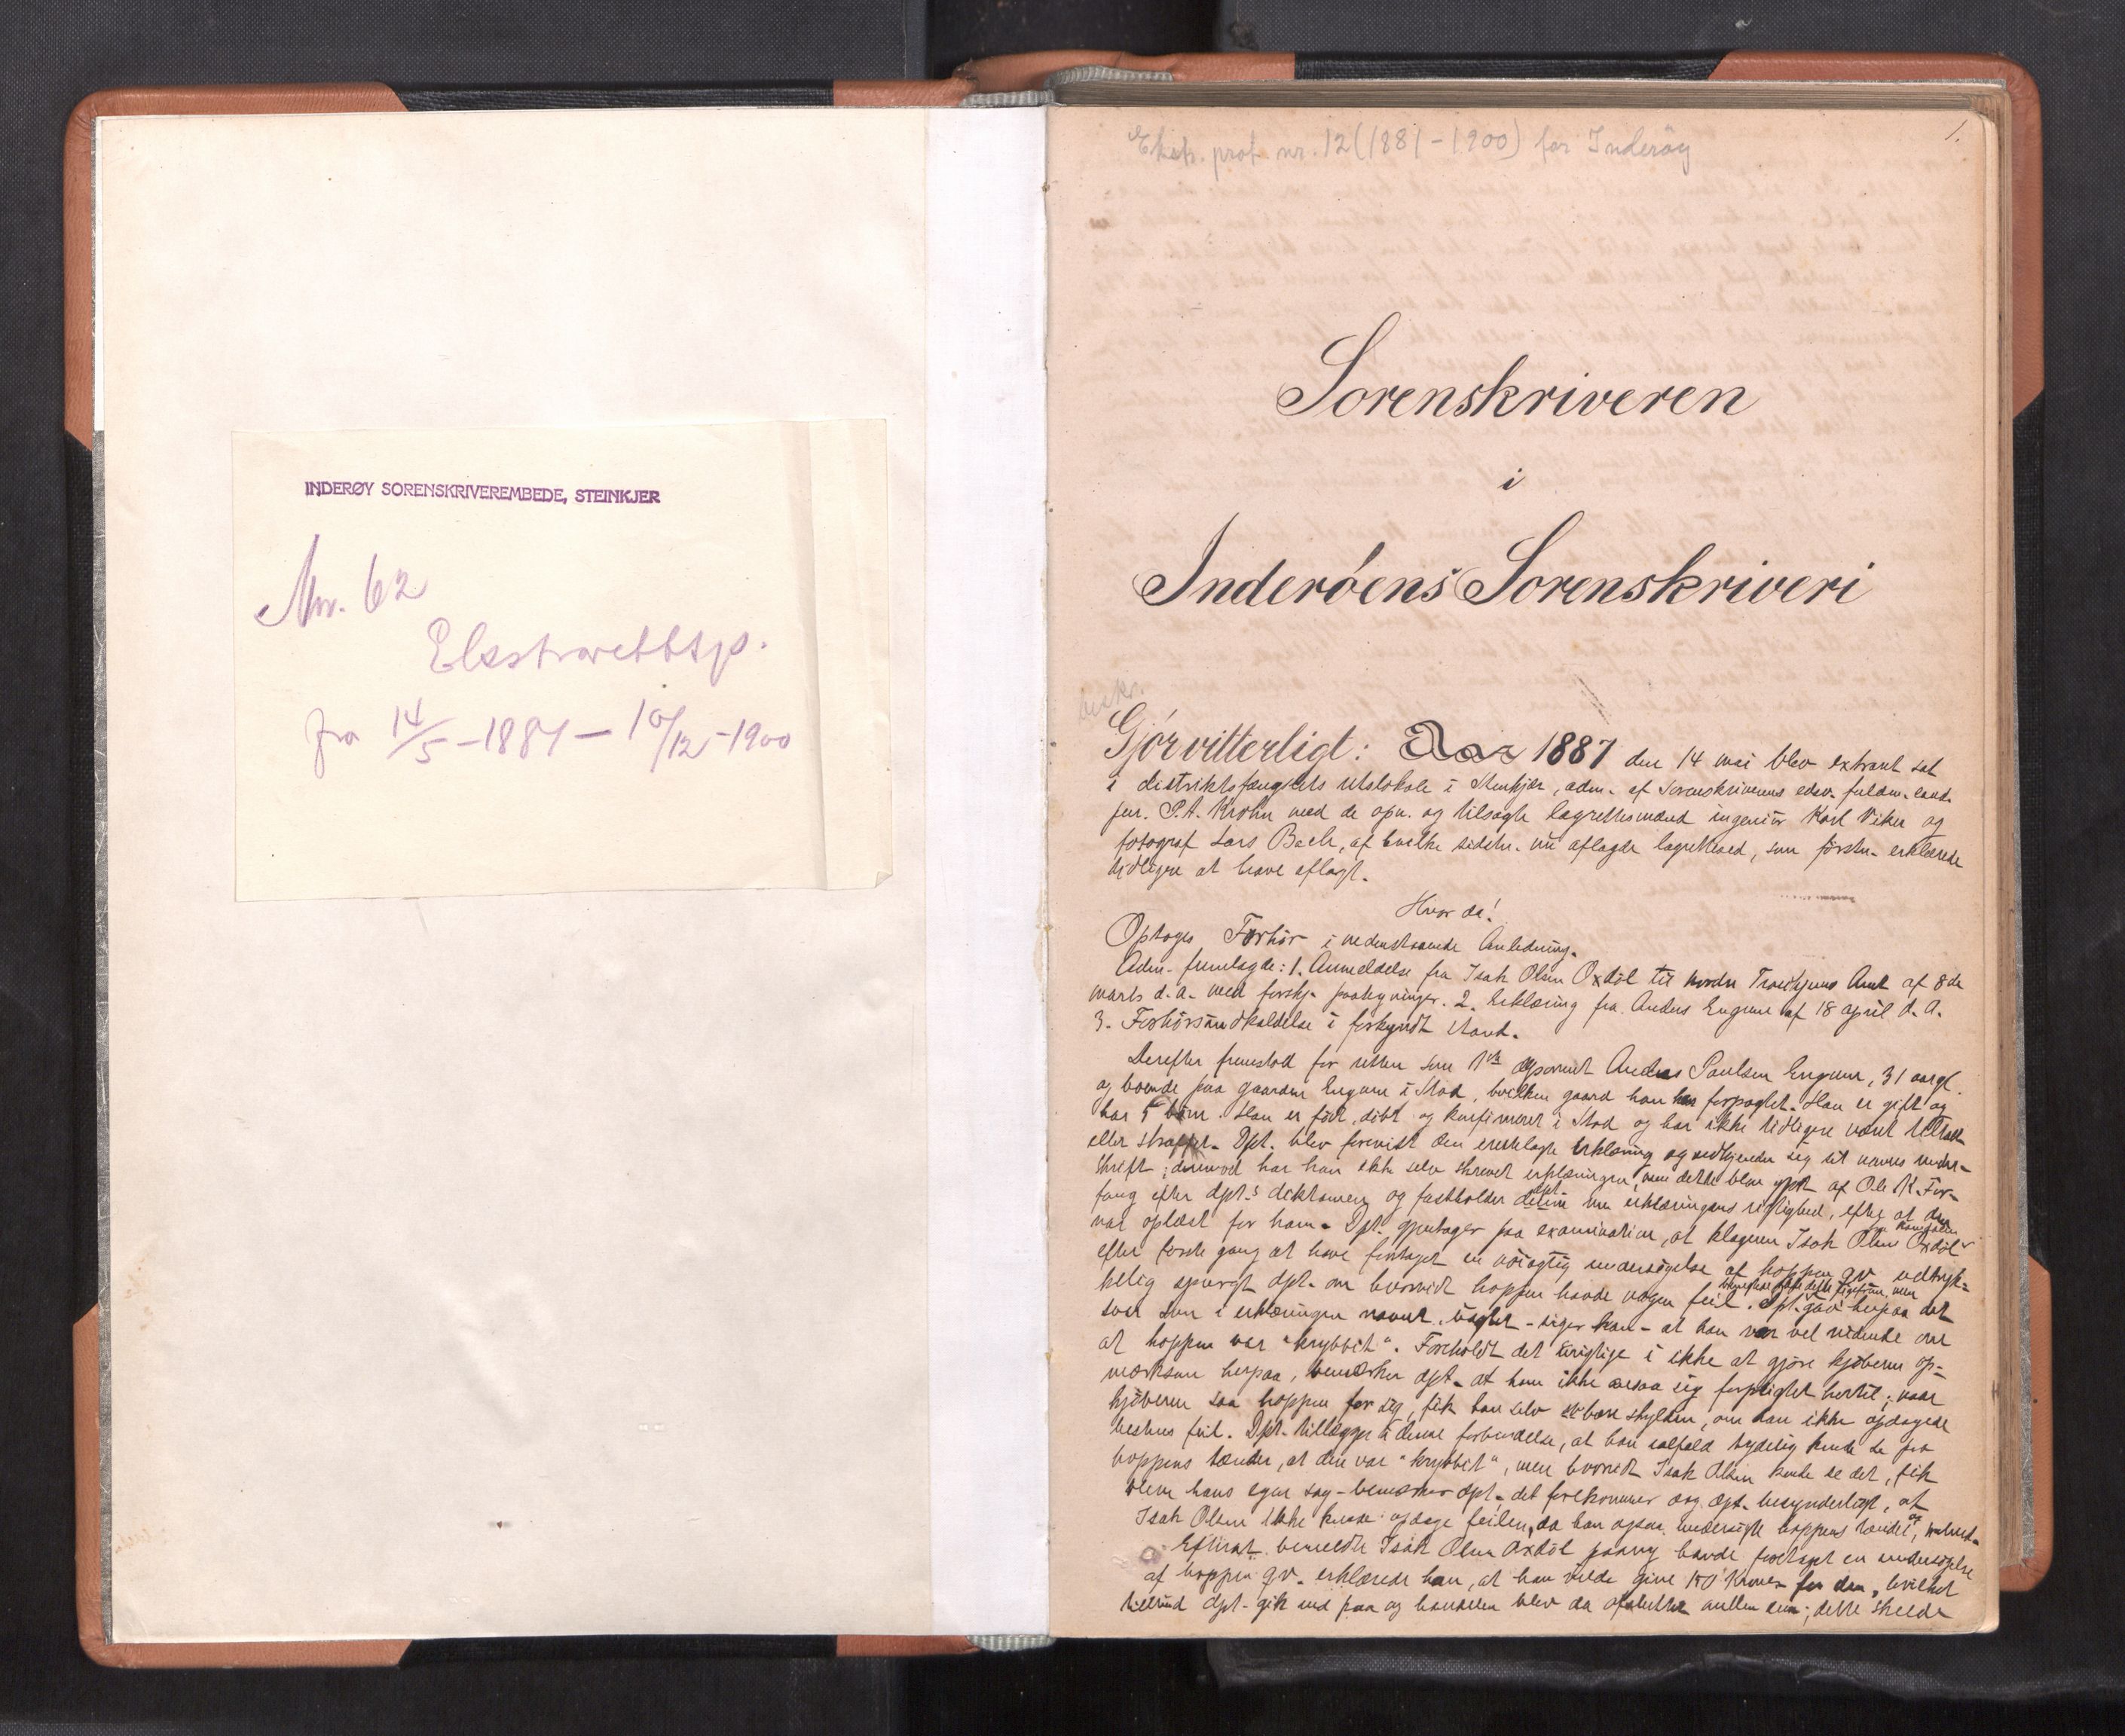 INDERØY SORENSKRIVEREMBEDE, STEINKJER
Nr. 62
Ekstrarettsp.
fra 14/5 - 1887 - 10/12 - 1900
Ekstr. prot. nr. 12 (1881-1900) for Inderøy
1.
Sorenskriveren
i
Inderøens Sorenskriveri
beskr.
Gjør vitterligt: Aar 1887 den 14 mai blev extraret sat
i distriktsfængslets retslokale i Stenkjær, adm. af Sorenskriverens edsv. fuldm. cand.
jur. P.A. Krohn med de opn. og tilsagte lagrettesmænd ingeniør Karl Viken og
fotograf Lars Bech, af hvilke sidstn. nu aflagde lagretteed, som førstn. erklærede
tidligere at have aflagt.
Hvor da!
Optoges Forhør i nedenstaaende Anledning.
Adm. fremlagde: 1. Anmeldelse fra Isak Olsen Oxdøl til nordre Trondhjems Amt af 8de
marts d. A. med forskj. paategninger. 2. Erklæring fra Anders Englum af 18 april d. A.
3. Forhørsindkaldelse i forkyndt stand.
Derefter fremstod for retten som 1ste deponent Anders Paulsen Englum, 31 aar gl.
og boende paa gaarden Englum i Stod, hvilken gaard han har forpagtet. Han er gift og
har 5 børn. Han er født, døbt og konfirmeret i Stod og har ikke tidligere været tiltalt
eller straffet. Dpt. blev forevist den fremlagte Erklæring og vedkjender sig sit navns under-
skrift; derimod har han ikke selv skrevet erklæringen, men dette blev gjort af Ole K. For-
fang efter dpt.s diktamen og fastholder dpt. erklæringens rigtighed, efter at den
var oplæst for ham. Dpt. gjentager paa examination, at klageren Isak Olsen Oxdøl
efter første gang at have foretaget en nøiagtig undersøgelse af hoppen qv. udtryk-
kelig spurgt dpt. om hvorvidt hoppen havde nogen feil. Dpt. gav herpaa det
svar som i erklæringen nævnt, uagtet - siger han - at han var vel vidende om
at hoppen var "krybbit". Foreholdt det urigtige i ikke at gjøre kjøberen op-
mærksom herpaa, bemærker dpt. at han ikke ansaa sig forpligtet hertil; naar
kjøberen saa hoppen for sig, fik han selv bære skylden, om han ikke opdagede
hestens feil. Dpt. tillægger i denne forbindelse, at han ialfald tydelig kunde se paa
hoppens tænder, at den var "krybbit", men hvorvidt Isak Olsen kunde se det, fik
blive hans egen sag - bemærker dpt. det forekommer og dpt. besynderligt, at
Isak Olsen ikke kunde opdage feilen, da han ogsaa undersøgte hoppens tænder,
Efterat bemeldte Isak Olsen Oxdøl paany havde foretaget en undersøgelse
af hoppen qv. erklærede han, at han vilde give 150 Kroner for den, hvilket
tilbud dpt. gik ind paa og handelen blev da afsluttet mellem dem; dette skeede